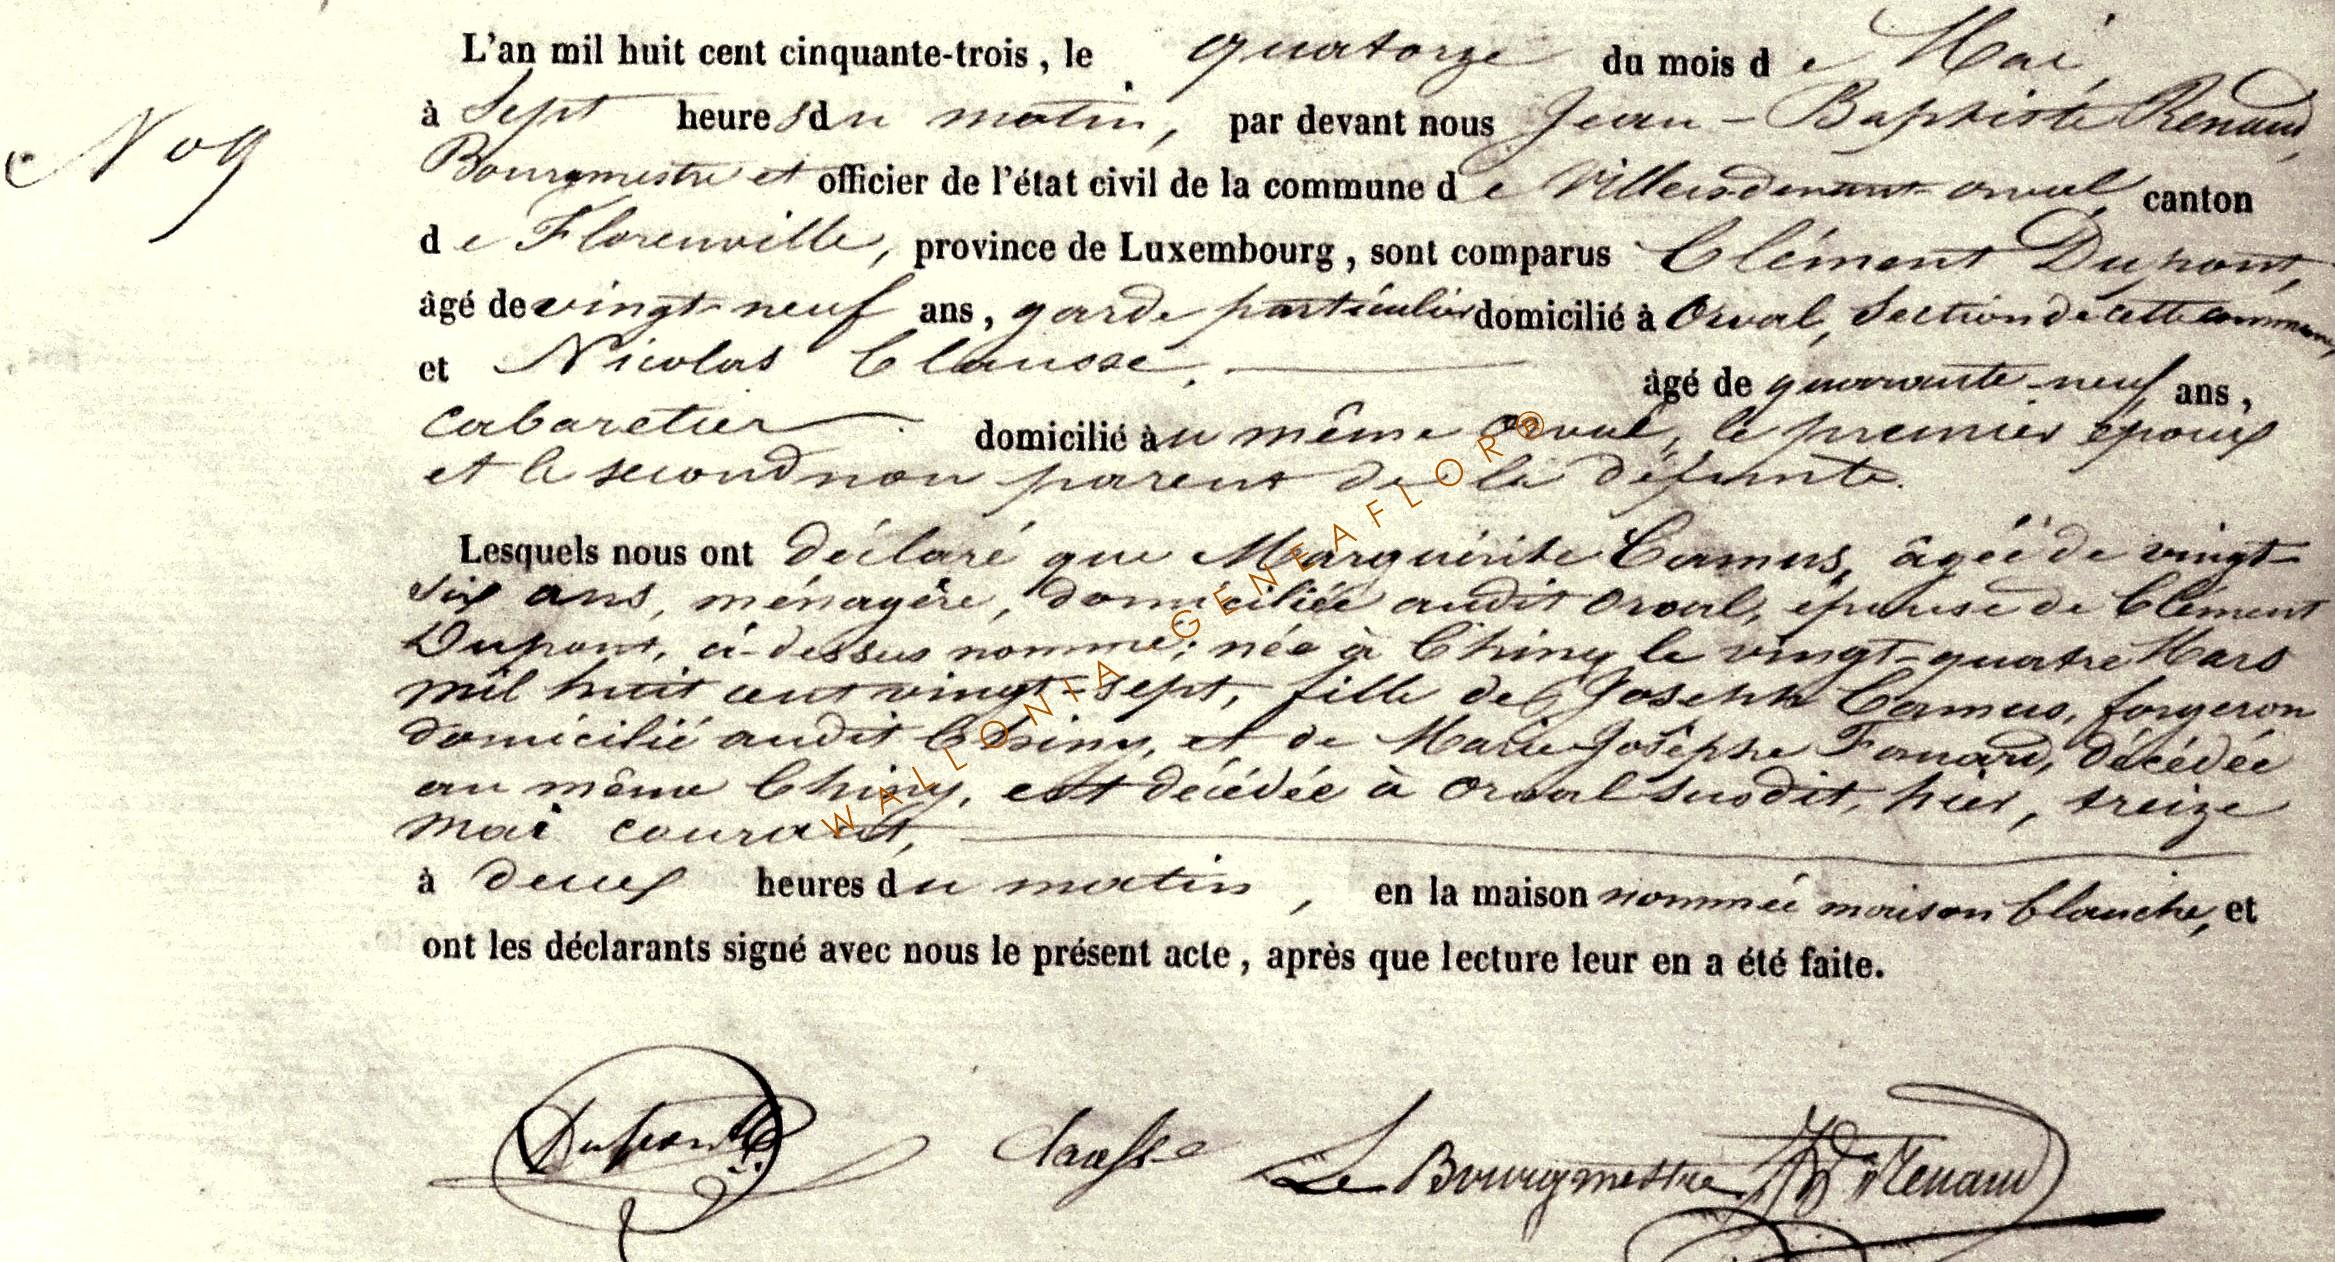 L'an mil huit cent cinquante-trois, le quatorze du mois de Mai,
à Sept heures du matin, par devant nous Jean-Baptiste Renaud,
N 09
Bourgmestre et officier de l'état civil de la commune de Villersdevant-orval, canton
de Florenville, province de Luxembourg, sont comparus Clément Dupont,
âgé de vingt-neuf ans, garde particulier domicilié à Orval, Section de cette commune,
et Nicolas Clausse, âgé de quarante-neuf ans,
Cabaretier domicilié au même Orval, le premier époux
et le second non parent de la défunte.
Lesquels nous ont déclaré que Marguérite Camus, âgée de vingt-
six ans, ménagère, domiciliée audit Orval, épouse de Clément
Dupont, ci-dessus nommé; née à Chiny le vingt-quatre Mars
mil huit cent vingt-sept, fille de Joseph Camus, forgeron
domicilié audit Chiny, et de Marie Josèphe Fonard, décédée
au même Chiny, est décédée à Orval susdit, hier, treize
mai courant,
à deux heures du matin, en la maison nommée maison blanche, et
ont les déclarants signé avec nous le présent acte, après que lecture leur en a été faite.
Dupont Clausse Le Bourgmestre JB Renaud
WALLONIA GENEAFLOR®